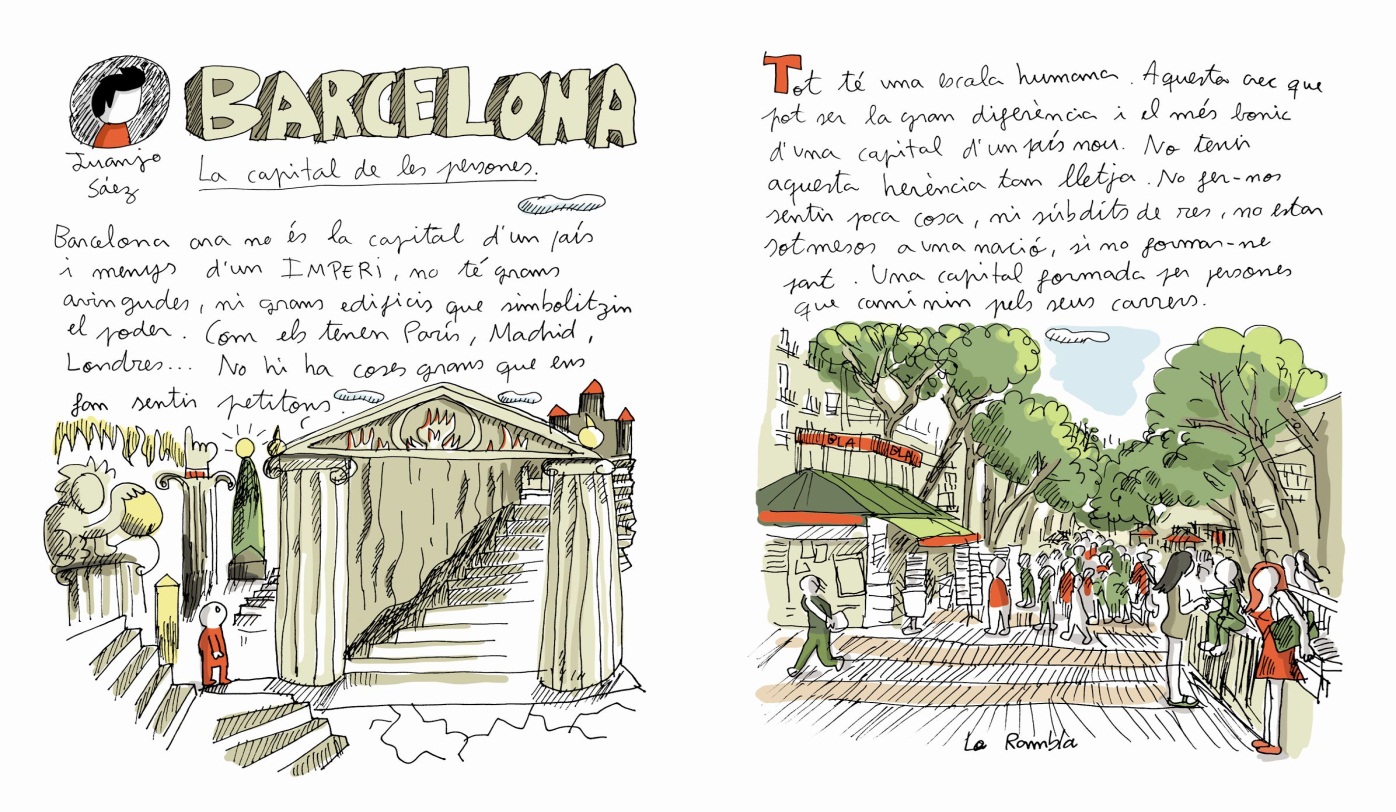 BARCELONA
Juanjo
Sáez
La capital de les persones.
Barcelona ara no és la capital d'un país
i menys d'un IMPERI, no té grans
avingudes, ni grans edificis que simbolitzin
el poder. Com els tenen París, Madrid,
Londres... No hi ha coses grans que ens
fan sentir petitons.
Tot té una escala humana. Aquesta crec que
pot ser la gran diferència i el més bonic
d'una capital d'un país nou. No tenir
aquesta herència tan lletja. No fer-nos
sentir poca cosa, ni súbdits de res, no estar
sotmesos a una nació, si no formar-ne
part. Una capital formada per persones
que caminin pels seus carrers.
BLA BLA
La Rambla